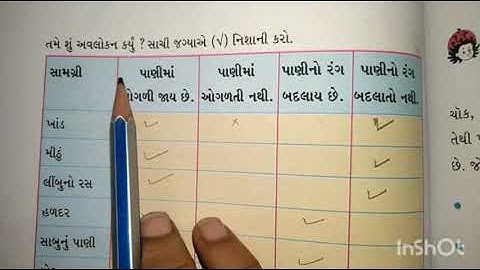 તમે શું અવલોકન કર્યું ? સાચી જગ્યાએ (√) નિશાની કરો.
સામગ્રી પાણીમાં પાણીમાં પાણીનો રંગ પાણીનો રંગ
ઓગળી જાય છે. ઓગળતી નથી. બદલાય છે. બદલાતો નથી.
ખાંડ ✓ × ✓
મીઠું ✓ ✓
લીંબુનો રસ ✓ ✓
હળદર ✓
સાબુનું પાણી ✓
ચૉક,
તેથી
છે. જો
InShOt